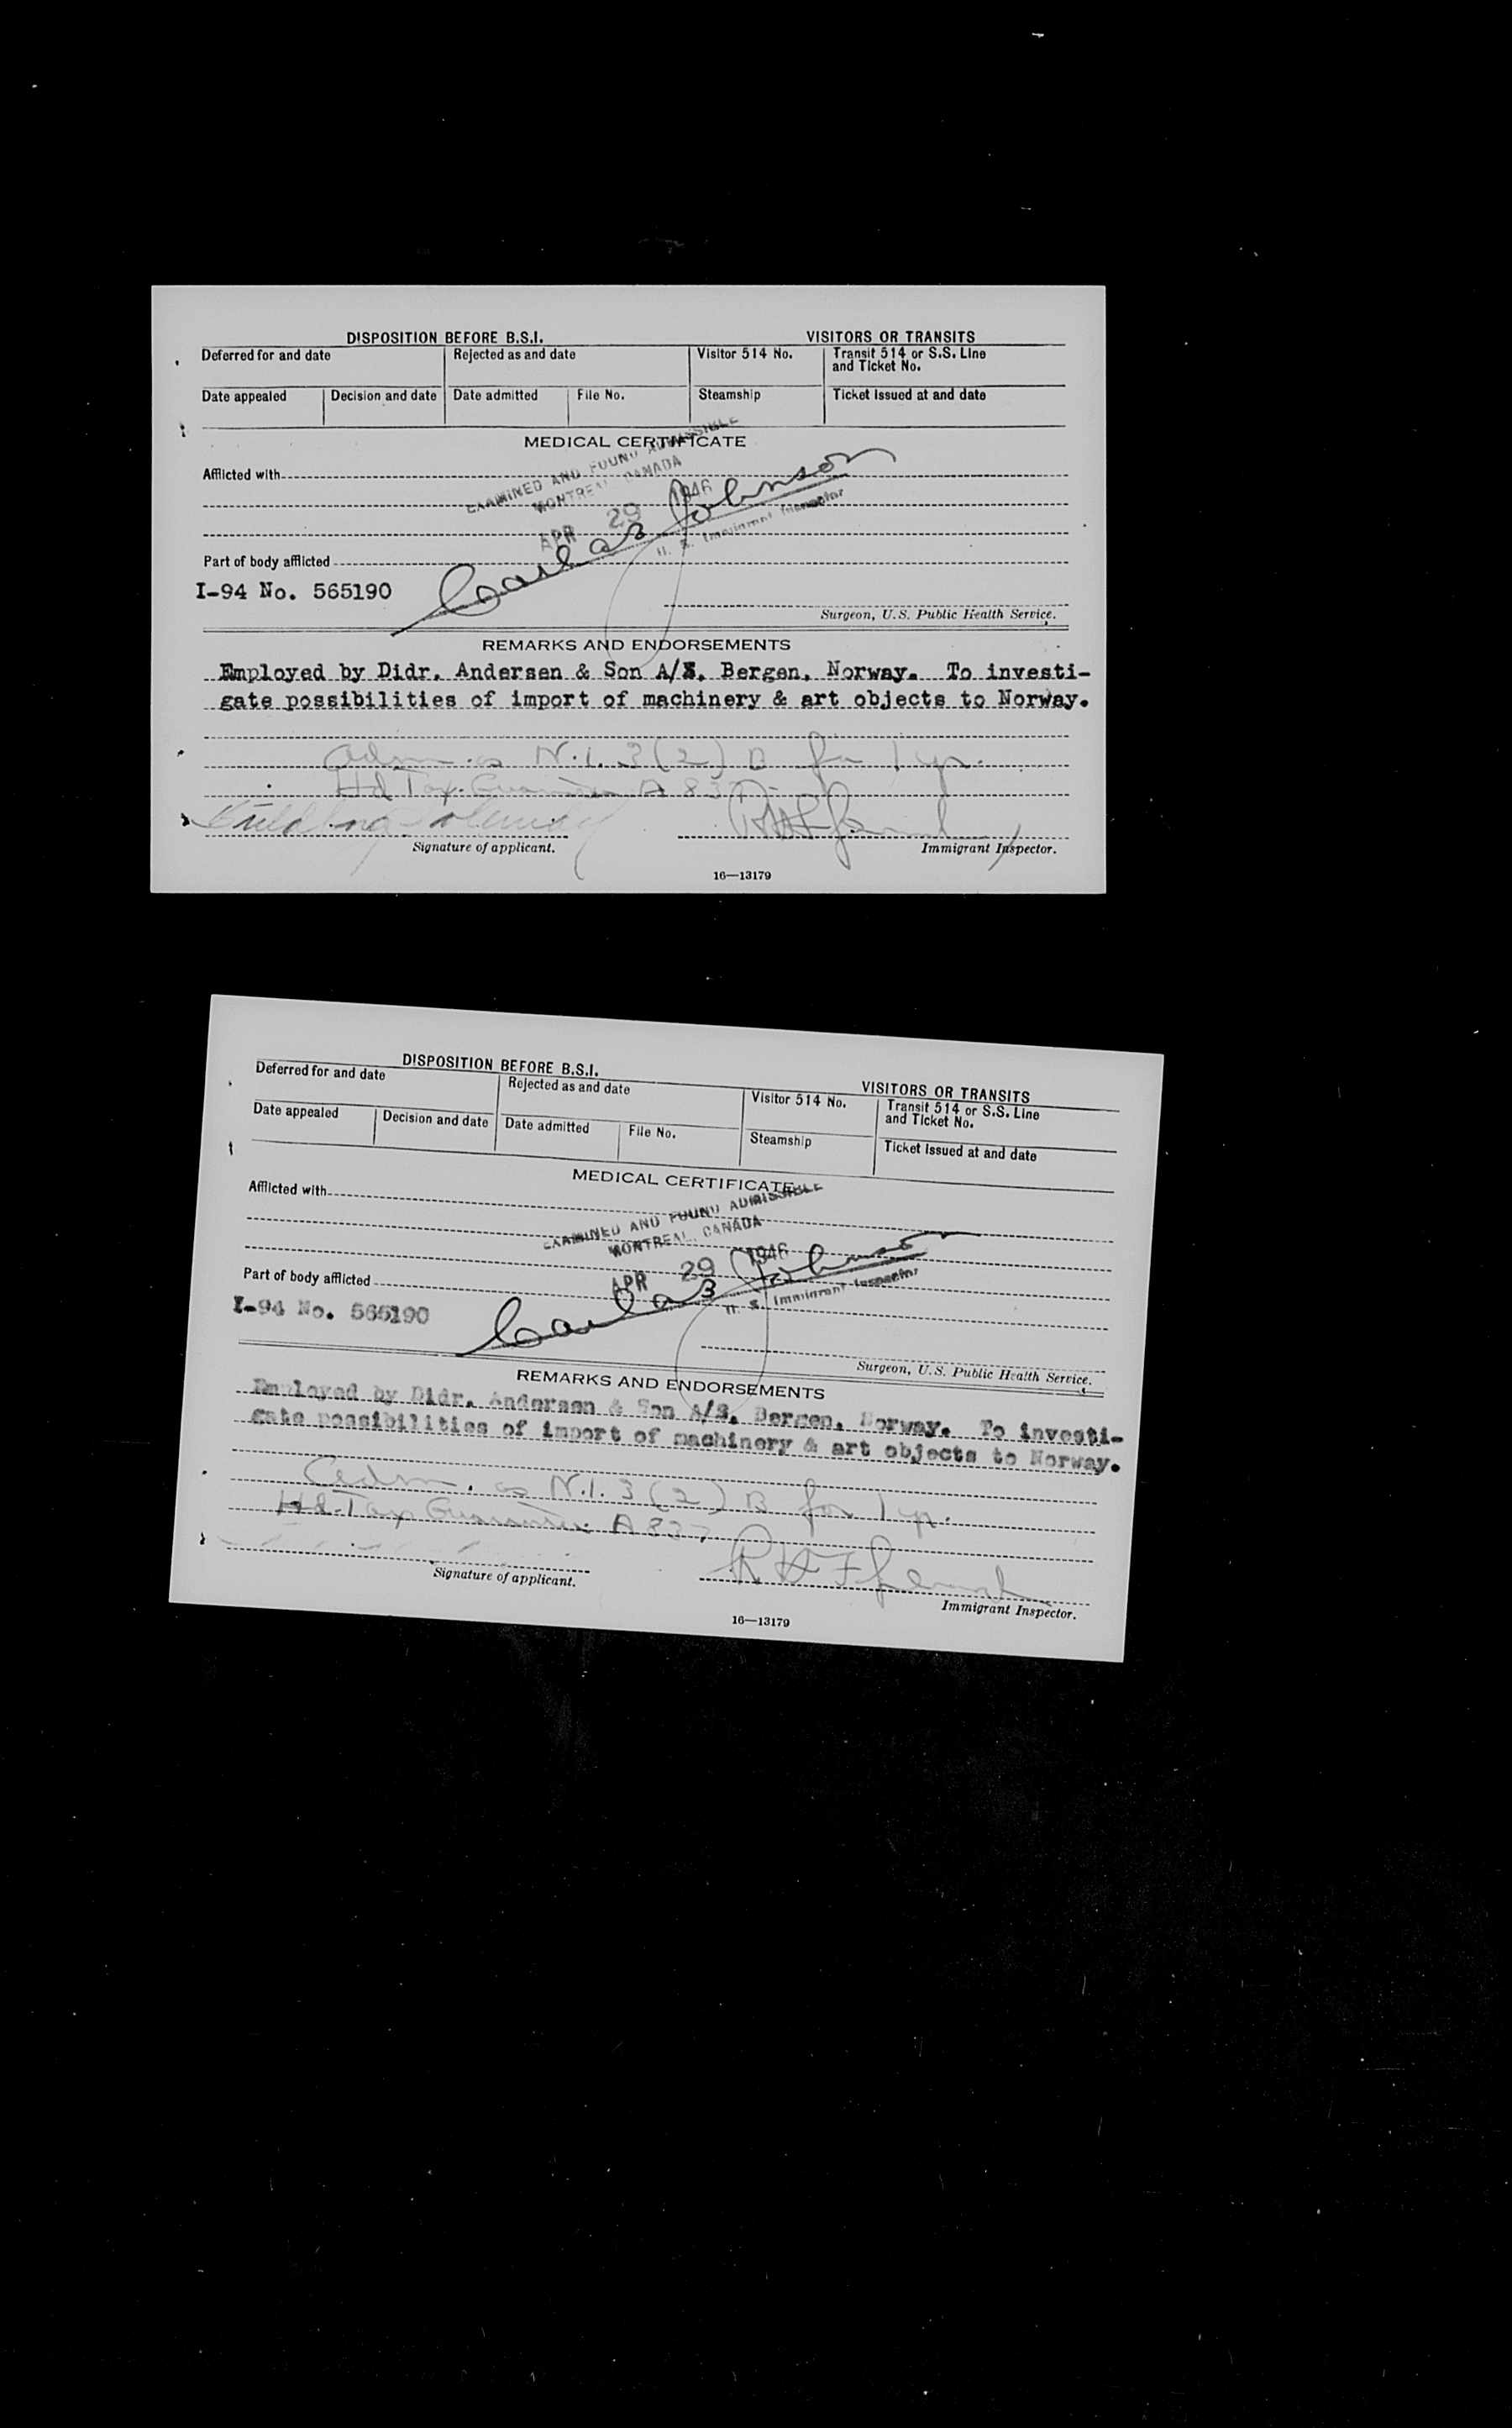 DISPOSITION BEFORE B.S.I.
VISITORS OR TRANSITS
Deferred for and date
Rejected as and date
Visitor 514 No.
Transit 514 or S.S. Line and Ticket No.
Date appealed
Decision and date
Date admitted
File No.
Steamship
Ticket Issued at and date
MEDICAL CERTIFICATE
EXAMINED AND FOUND ADMISSIBLE
Afflicted with
MONTREAL, CANADA
APR 29 1946
Johnson
U. S. Immigrant Inspector
Part of body afflicted
I-94 No. 565190
Surgeon, U.S. Public Health Service.
REMARKS AND ENDORSEMENTS
Employed by Didr. Andersen & Son A/S, Bergen, Norway. To investi-
gate possibilities of import of machinery & art objects to Norway.
Adm. as N.I. 3(2) B for 1 yr.
Hd Tax Guarantee A 837
Signature of applicant.
Immigrant Inspector.
16—13179
DISPOSITION BEFORE B.S.I.
VISITORS OR TRANSITS
Deferred for and date
Rejected as and date
Visitor 514 No.
Transit 514 or S.S. Line and Ticket No.
Date appealed
Decision and date
Date admitted
File No.
Steamship
Ticket Issued at and date
MEDICAL CERTIFICATE
Afflicted with
EXAMINED AND FOUND ADMISSIBLE
MONTREAL, CANADA
APR 29 1946
Johnson
U. S. Immigrant Inspector
Part of body afflicted
I-94 No. 565190
Surgeon, U.S. Public Health Service.
REMARKS AND ENDORSEMENTS
Employed by Didr. Andersen & Son A/S, Bergen, Norway. To investi-
gate possibilities of import of machinery & art objects to Norway.
Adm. as N.I. 3(2) B for 1 yr.
Hd Tax Guarantee A 837
Signature of applicant.
Immigrant Inspector.
16—13179